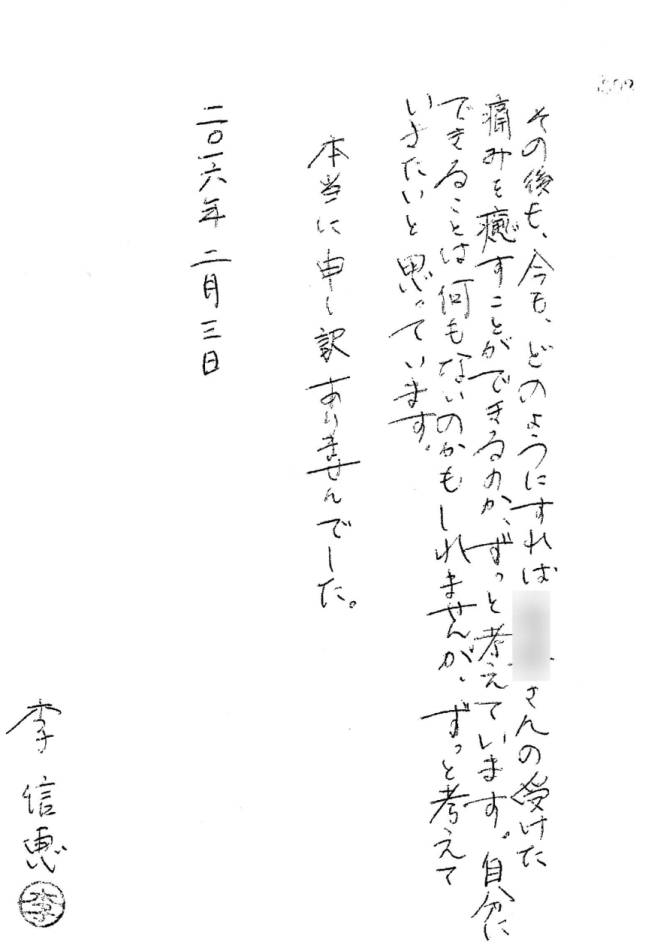 その後も、今も、どのようにすれば さんの受けた
痛みを癒すことができるのか、ずっと考えています。自分に
できることは何もないのかもしれませんが、ずっと考えて
いきたいと思っています。
本当に申し訳ありませんでした。
二〇一六年 二月三日
李 信恵
李